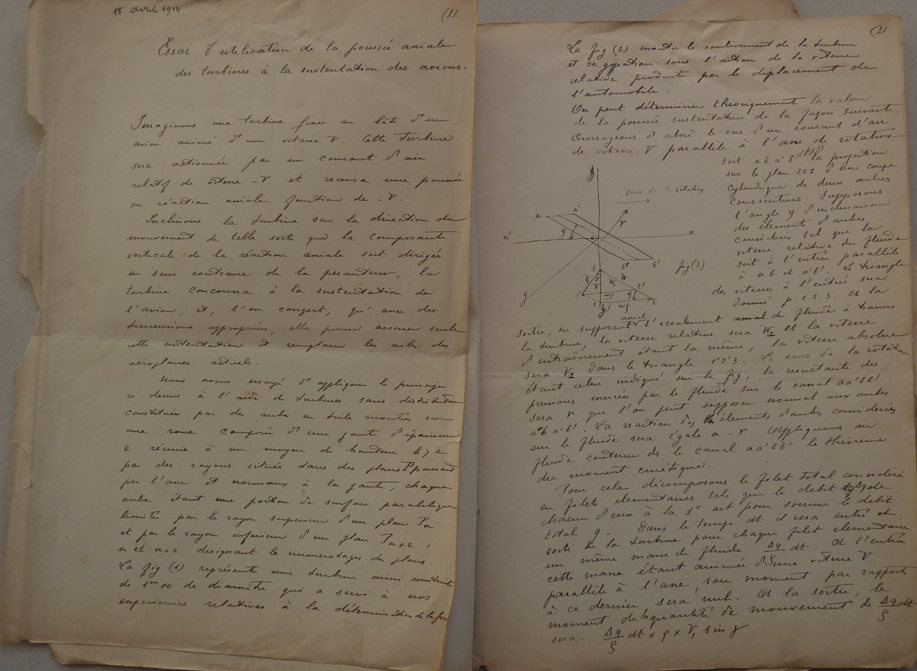 15 avril 1914
(1)
Essai d'utilisation de la poussée axiale
des turbines à la sustentation des avions.
Imaginons une turbine fixée au bâti d'un
avion animé d'une vitesse V cette turbine
sera actionnée par un courant d'air
relatif de vitesse -V et recevra une poussée
ou réaction axiale fonction de -V.
Inclinons la turbine sur la direction du
mouvement de telle sorte que la composante
verticale de la réaction axiale soit dirigée
en sens contraire de la pesanteur, la
turbine concourra à la sustentation de
l'avion, et, l'on conçoit, qu'avec des
dimensions appropriées, elle puisse assurer seule
cette sustentation et remplacer les ailes des
aéroplanes actuels.
Nous avons essayé d'appliquer le principe
ci-dessus à l'aide de turbines sans distributeur
constituées par des aubes en toile montées sur
une roue composée d'une jante d'épaisseur
e réunie à un moyeu de hauteur
par des rayons situés dans des plans passant
par l'axe et normaux à la jante, chaque
aube étant une portion de surface parabolique
limitée par le rayon supérieur d'un plan Pn
et par le rayon inférieur d'un plan Pn+2,
n et n+2 désignant les numérotages des plans.
La fig (1) représente une turbine ainsi construite
de 1m00 de diamètre qui a servi à nos
expériences relatives à la détermination de la
(3)
La fig (2) montre le soulèvement de la turbine
et sa gyration sous l'action de la vitesse
relative produite par le déplacement de
l'automobile.
On peut déterminer théoriquement la valeur
de la poussée sustentatrice de la façon suivante
Envisageons d'abord le cas d'un courant d'air
de vitesse V parallèle à l'axe de rotation
soit a b a' b' la projection
sur le plan d'une coupe
cylindrique de deux aubes
consécutives. Supposons
l'angle φ d'inclinaison
des éléments d'aubes
considérés tel que la
vitesse relative du fluide
soit à l'entrée parallèle
à a b et a' b'. Le triangle
des vitesses à l'entrée sera
donné p 1 2 3. A la
sens de la rotation
fig (3)
sortie, en supposant l'écoulement axial du fluide à travers
la turbine, la vitesse relative sera W₂ et la vitesse
d'entraînement étant la même, la vitesse absolue
sera V₂ dans le triangle 1'2'3'. Le sens de la rotation
étant celui indiqué sur la fig, la résultante des
pressions exercées par le fluide sur le canal aa'bb'
sera r que l'on peut supposer normal aux aubes
ab a'b'. La réaction des éléments d'aubes considérés
sur le fluide sera égale a -r. Appliquons au
fluide contenu ds le canal aa'bb' le théorème
du moment cinétique.
Pour cela décomposons le filet total considéré
en filets élémentaires tels que le débit Δq de
chacun d'eux à la s" ait pour somme le débit
total q. Dans le temps dt il sera entré et
sorti de la turbine pour chaque filet élémentaire
un même masse de fluide Δq/g dt. A l'entrée
cette masse étant animée d'une vitesse V
parallèle à l'axe son moment par rapport
à ce dernier sera nul. A la sortie, le
moment de la quantité de mouvement de Δq/g dt
sera Δq/g dt × ρ × V₁ sin γ